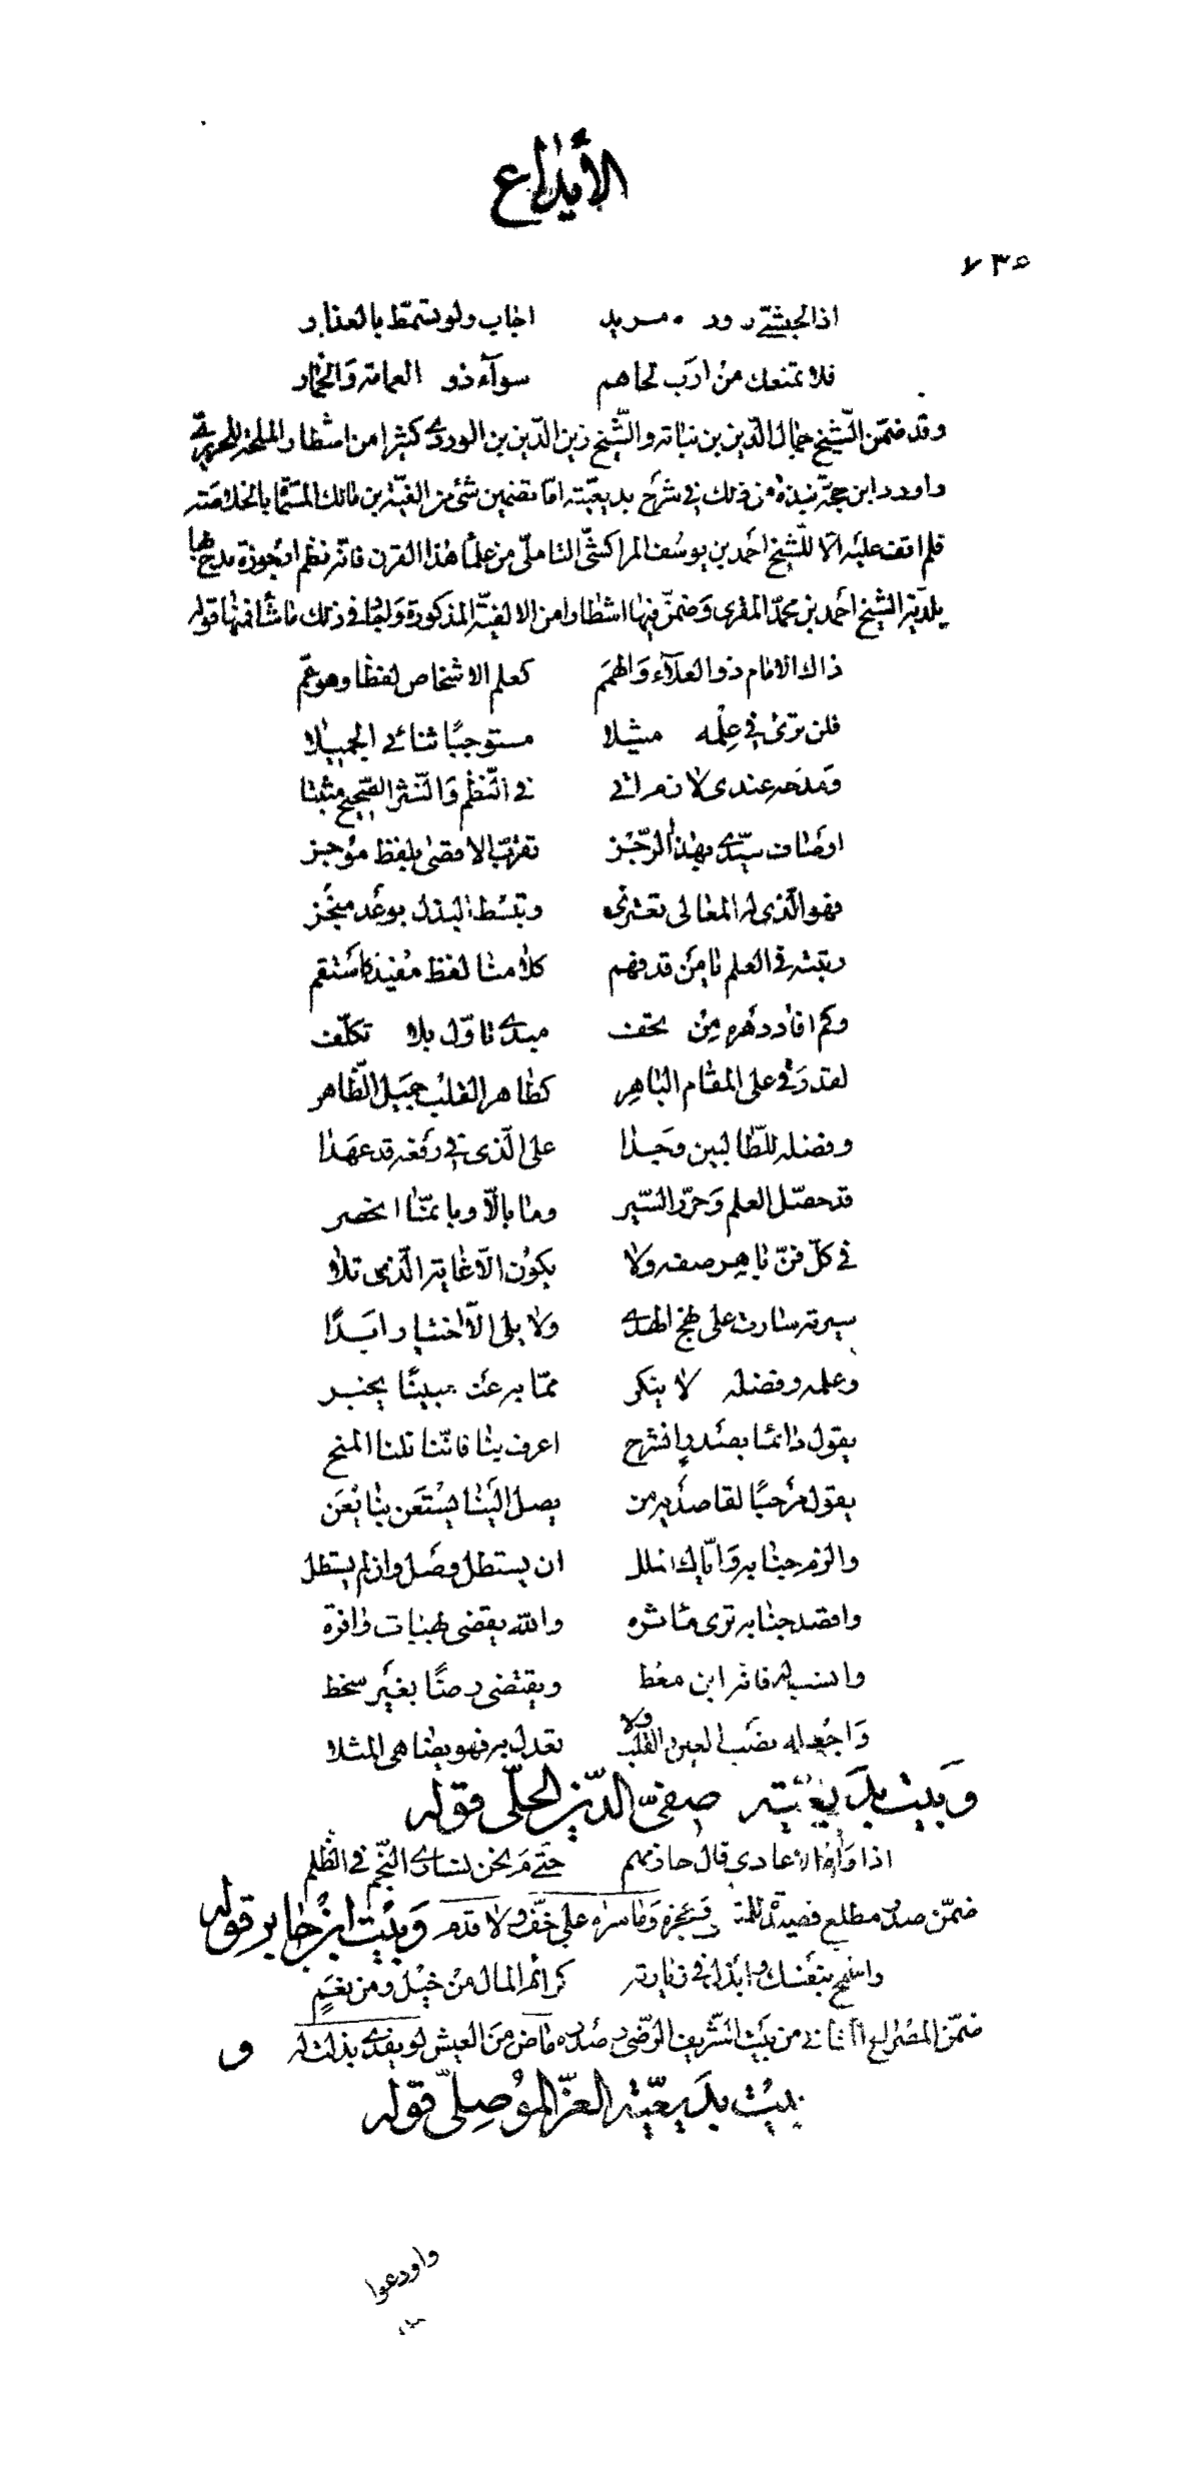 الأيداع
٧٣٥
اذا لجشتى رود مريد اجاب ولو تسمّط بالعذاب
فلا تمنعك من ارب لحاهم سوآء ذو العمامة والخمار
وقد ضمّن الشّيخ جمال الدّين بن نباتة والشّيخ زين الدّين بن الوردى كثيرا من اشطار الملحة للحريرى
واورد ابن حجة نبذة من ذلك فى شرح بديعيّته امّا تضمين شئ من الفيّة بن مالك المسمّاة بالخلاصة
فلم اقف عليه الّا للشّيخ احمد بن يوسف المراكشّى التاملّى من علماء هذا القرن فانّه نظم ارجوزة مدح بها
بلديّه الشيخ احمد بن محمّد المقرى وضمّن فيها اشطارا من الالفيّة المذكورة واجاد فى ذلك ما شاء فمنها قوله
ذاك الامام ذو العلآء والهمم كعلم الاشخاص لفظا وهو عمّ
فلن ترى فى علمه مثيلا مستوجبًا ثنائى الجميلا
ومدحه عندى لازم اتى فى النّظم والنّثر الصّحيح مثبتا
اوصاف سيّدى بهذا الرّجز تقرّب الاقصى بلفظ موجز
فهو الّذى له المعالى تعتزى وتبسط البذل بوعد منجز
رتبته فى العلم يا من قد فهم كلامنا لفظ مفيد كاستقم
وكم افاد دهره من تحف مبدى تاوّل بلا تكلّف
لقد رقى على المقام الباهر كطاهر القلب جميل الظّاهر
وفضله للطّالبين وجدا على الّذى فى رفعه قد عهدا
قد حصّل العلم وحرّر السّير وما بالّا وبانّما انحصر
فى كلّ فنّ باهر صفه ولا يكون الّا غاية الّذى تلا
سيرته سارت على نهج الهدى ولا يلى الّا اختيارا ابدًا
وعلمه وفضله لا ينكر ممّا به عنه مبينًا يخبر
يقول دائما بصدر انشرح اعرف بنا فانّنا نلنا المنح
يقول مرحبًا لقاصديه من يصل الينا يستعن بنا يعن
والزم جنابه وايّاك الملل ان يستطل وصل وان لم يستطل
واقصد جنابه ترى مآثره والله يقضى بهبات وافرة
وانسب له فانّه ابن معط ويقتضى رضًا بغير سخط
واجعله نصب العين والقلب ولا تعدل به فهو يضاهى المثلا
وبيت بديعيّته صفىّ الدّين الحلّى قوله
اذا رآه الاعادى قال حازمهم حتّى م نحن نسارى النّجم فى الظّلم
ضمّن صدر مطلع قصيدة للمتنبّى وعجزه وما سراه على خفّ ولا قدم وبيت ابن جابر قوله
واسمح بنفسك وابذل فى زيارته كرائم المال من خيل ومن نعم
ضمّن المصراع الثانى من بيت الشّريف الرّضى وصدره ماض من العيش لو يفدى بذلت له و
بيت بديعيّة العزّ الموصلى قوله
واودعوا